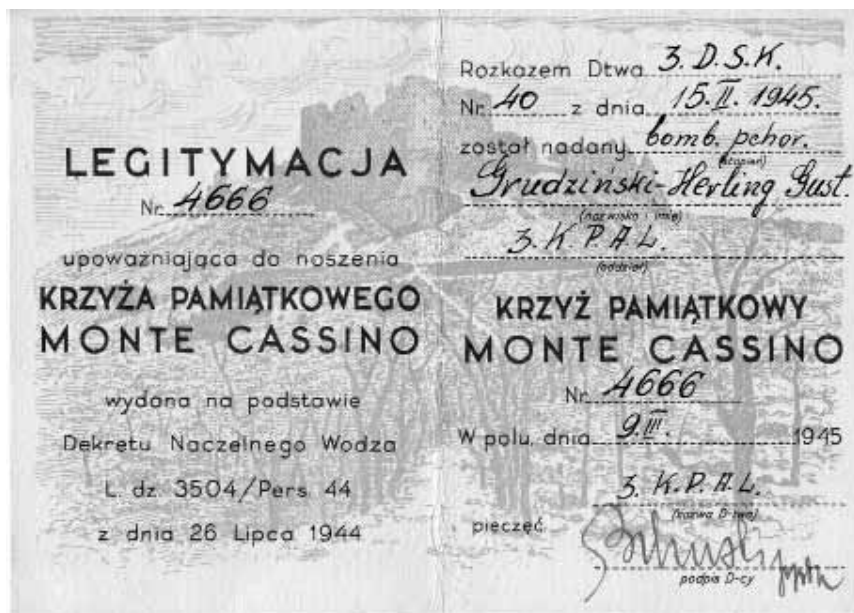 LEGITYMACJA
Nr 4666
upoważniająca do noszenia
KRZYŻA PAMIĄTKOWEGO
MONTE CASSINO
wydana na podstawie
Dekretu Naczelnego Wodza
L. dz. 3504/Pers 44
z dnia 26 Lipca 1944
Rozkazem Dtwa 3. D.S.K.
Nr 40 z dnia 15. II. 1945.
został nadany bomb. pchor.
(stopień)
Grudziński-Herling Gust.
(nazwisko i imię)
3. K.P.A.L.
(oddział)
KRZYŻ PAMIĄTKOWY
MONTE CASSINO
Nr 4666
W polu, dnia 9. III. 1945
3. K.P.A.L.
(nazwa D-twa)
pieczęć
podpis D-cy